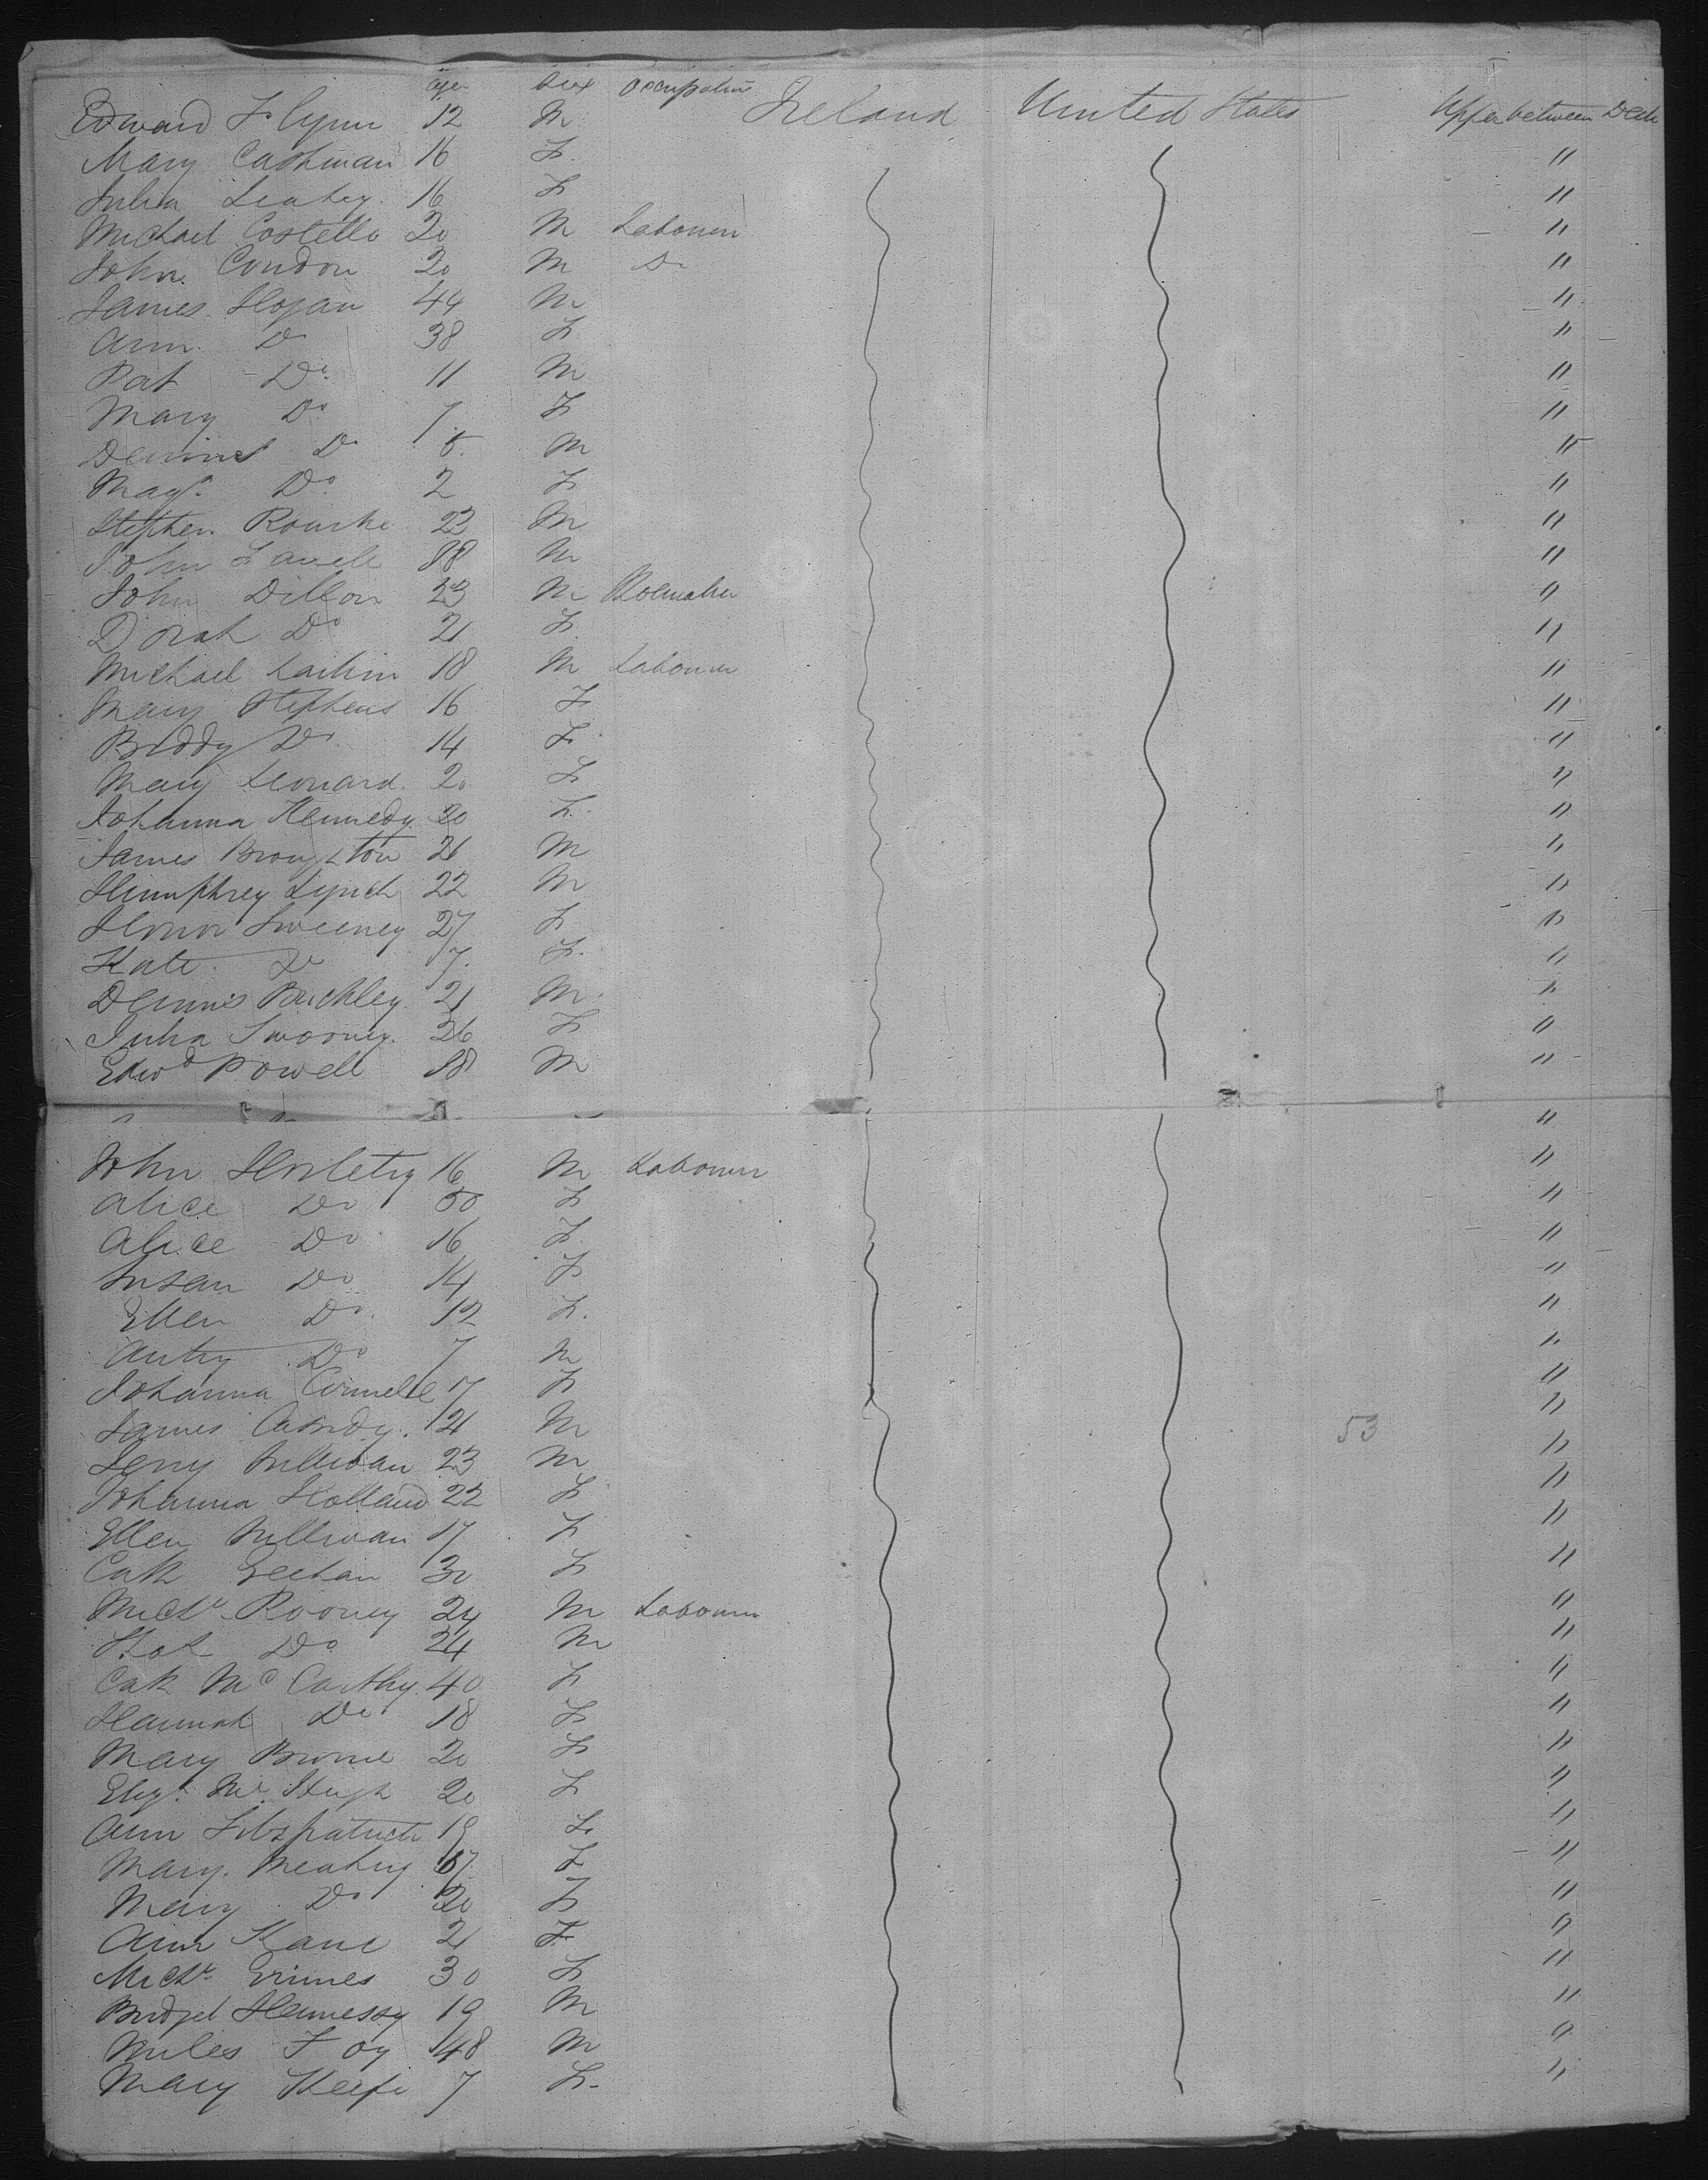 Age Sex Occupation
Edward Flynn 12 M Ireland United States Upper between Deck
Mary Cashman 16 F "
Julia Leahey 16 F "
Michael Costello 20 M Labourer "
John Condon 20 M Do "
James Hogan 44 M "
Ann Do 38 F "
Pat Do 11 M "
Mary Do 7 F "
Dennis Do 5 M "
Magt. Do 2 F "
Stephen Rourke 23 M "
John 88 M "
John Dillon 23 M "
Dorah Do 21 F "
Michael Larkin 18 M Labourer "
Mary Stephens 16 F "
Biddy Do 14 F "
Mary Leonard 20 F "
Johanna Kennedy 20 F "
James Broughton 21 M "
Humphrey Lynch 22 M "
Honor Sweeney 27 F "
Kate Do 7 F "
Dennis Buckley 21 M "
Julia Swooney 26 F "
Edwd Powell 18 M "
"
John 16 M Labourer "
Alice Do 50 F "
Alice Do 16 F "
Susan Do 14 F "
Ellen Do 12 F "
Do 7 M "
Johanna Connell 17 F "
James Cassidy 21 M 53 "
Jerry Sullivan 23 M "
Johanna Holland 22 F "
Ellen Sullivan 17 F "
Cath Geehan 30 F "
Michl Rooney 24 M Labourer "
Do 24 M "
Cath McCarthy 40 F "
Hannah Do 18 F "
Mary Browne 20 F "
Elizt. McHugh 20 F "
Ann Fitzpatrick 19 F "
Mary 67 F "
Mary Do 20 F "
Ann Kane 21 F "
Michl Grimes 30 F "
Bridget Hennessy 19 M "
Miles Foy 48 M "
Mary Keefe 7 F "